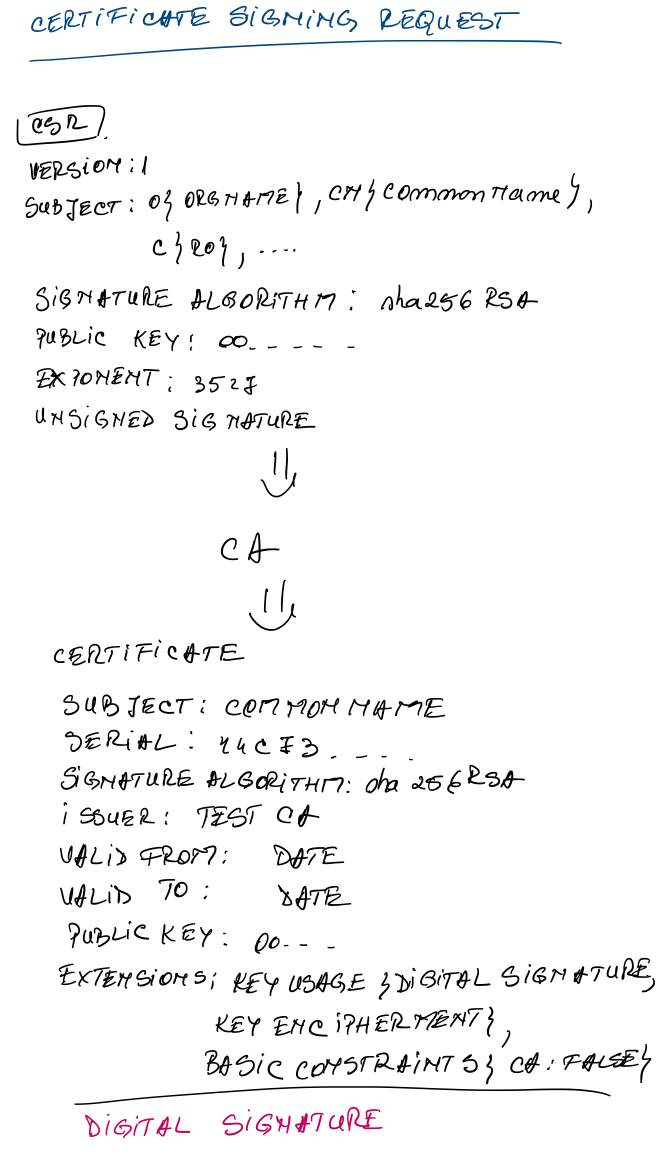 CERTIFICATE SIGNING REQUEST
CSR
VERSION: 1
SUBJECT: O{ORGNAME}, CN{CommonName},
C{RO}, ....
SIGNATURE ALGORITHM: sha256 RSA
PUBLIC KEY: 00-----
EXPONENT: 3527
UNSIGNED SIGNATURE
CA
CERTIFICATE
SUBJECT: COMMON NAME
SERIAL: 44CF3....
SIGNATURE ALGORITHM: sha 256 RSA
ISSUER: TEST CA
VALID FROM: DATE
VALID TO: DATE
PUBLIC KEY: 00---
EXTENSIONS: KEY USAGE {DIGITAL SIGNATURE,
KEY ENCIPHERMENT},
BASIC CONSTRAINTS{ CA: FALSE}
DIGITAL SIGNATURE